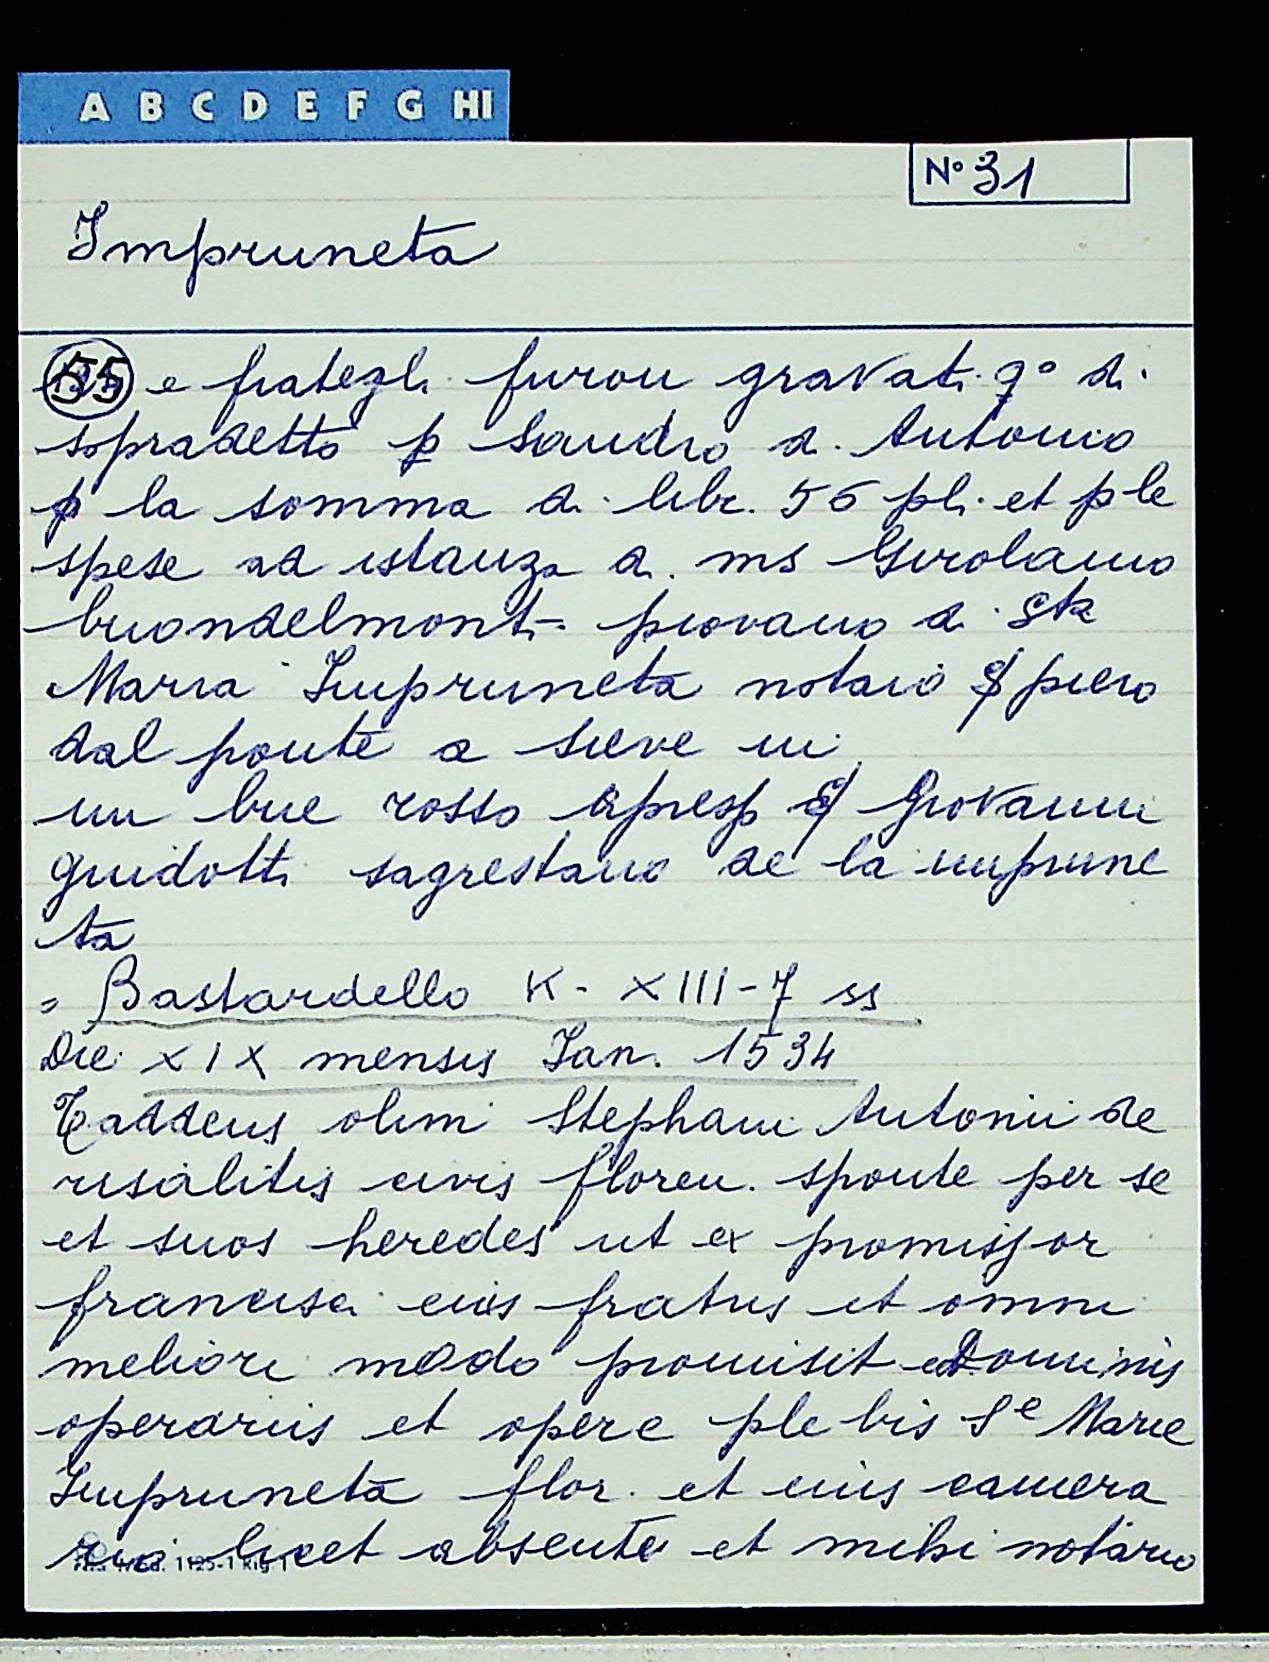 A B C D E F G HI
Nº 31
Impruneta
55 e frategli furon gravati qº di
sopradetto p Sandro d. Antonio
p la somma di libr. 56 pli. et p le
spese ad istanza d. ms Girolamo
buondelmonti piovano d. Sta
Maria Impruneta notaio S piero
dal ponte a sieve in
un bue rosso apresso S Giovanni
guidotti sagrestano de la imprune
ta
= Bastardello K - XIII - 7 ss
Die XIX mensis Jan. 1534
Taddeus olim Stephani Antonii de
risalitis civis floren. sponte per se
et suos heredes ut ex promissor
francisci eius fratris et omni
meliori modo promisit Dominis
operariis et opere plebis Se Marie
Impruneta flor. et eius camera
rio licet absente et mihi notario